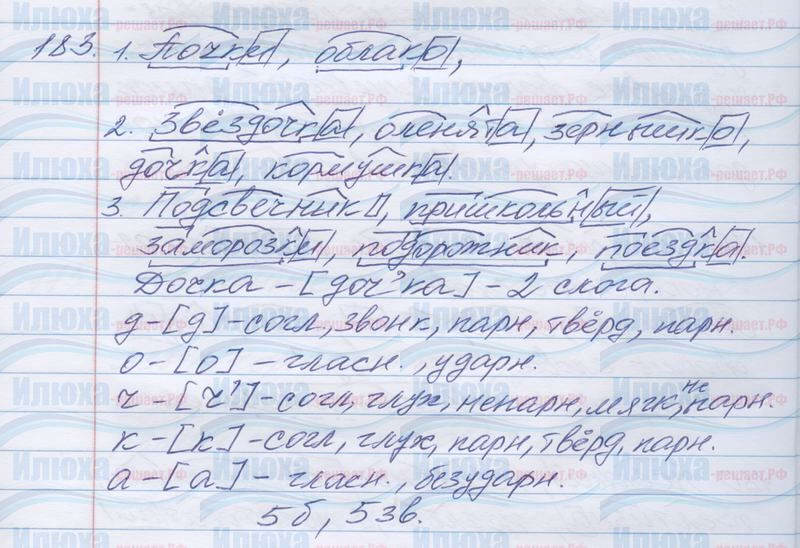 183. 1. Почки, облако,
2. Звёздочка, оленята, зёрнышко,
дочка, кормушка.
3. Подсвечник, пришкольный,
заморозки, подорожник, поездка.
Дочка – [доч'ка] – 2 слога.
д – [д] – согл, звонк, парн, твёрд, парн.
о – [о] – гласн., ударн.
ч – [ч'] – согл, глух, непарн, мягк, непарн.
к – [к] – согл, глух, парн, твёрд, парн.
а – [а] – гласн., безударн.
5б, 5зв.
Илюха-решает.РФ